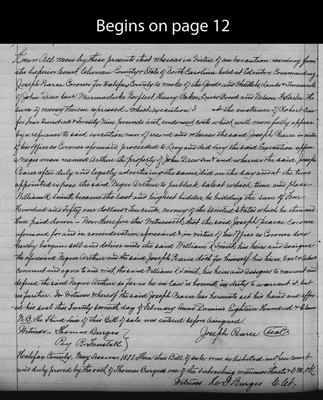 Begins on page 12
Know All men by these presents that whereas in Virtue of an Execution issuing from
the Superior Court Chowan County & State of North Carolina held at Edenton Commanding
Joseph Pearce Coroner for Halifax County to make of the Goods and Chattels, Lands & Tenements
of John Drew Senr. Marmaduke Henry Baker, Lewis Bond and
sum of money therein expressed which execution is at the instance of Robert
for four hundred & Ninety Nine pounds with endorsed costs which will more fully appear
by a reference to said execution now of record and whereas the said Joseph Pearce in virtue
of his office as Coroner aforesaid proceeded to levy and did levy the said Execution upon
a Negro man named Arthur the property of John Drew Senr and whereas the said Joseph
Pearce after duly and legally advertising the same, did on the day and at the time
appointed expose the said Negro Arthur to publick sale at which time and place
William R. Smith became the last and highest bidder, he bidding the sum of Four
Hundred and fifty one dollars & Ten cents, money of the United States which he then and
there paid down - Now therefore this Indenture Witnesseth that the said Joseph Pearce Coroner
aforesaid for and in consideration aforesaid & in virtue of his office as Coroner does
hereby bargain sell and deliver unto the said William R Smith, his heirs and assigns
the aforesaid Negro Arthur and the said Joseph Pearce doth for himself his heirs, Exrs & Admrs
covenant and agree to and with the said William R Smith, his heirs and assigns to warrant and
defend the said Negro Arthur so far as he in law is bound in duty to warrant & but
no farther. In witness whereof the said Joseph Pearce has hereunto set his hand and affix-
ed his seal this twenty seventh day of February Anno Domini Eighteen Hundred & Eleven
N.B. the third line of this Bill of sale was entered before assigned.
Witness - Thomas Burges
Ry R. Tunstall
Joseph Pearce (Seal)
Halifax County, May Session 1811. Then this Bill of sale was exhibited in open court
and duly proved by the oath of Thomas Burges one of the subscribing witnesses thereto &
Witness, L. Burges C. Ct.